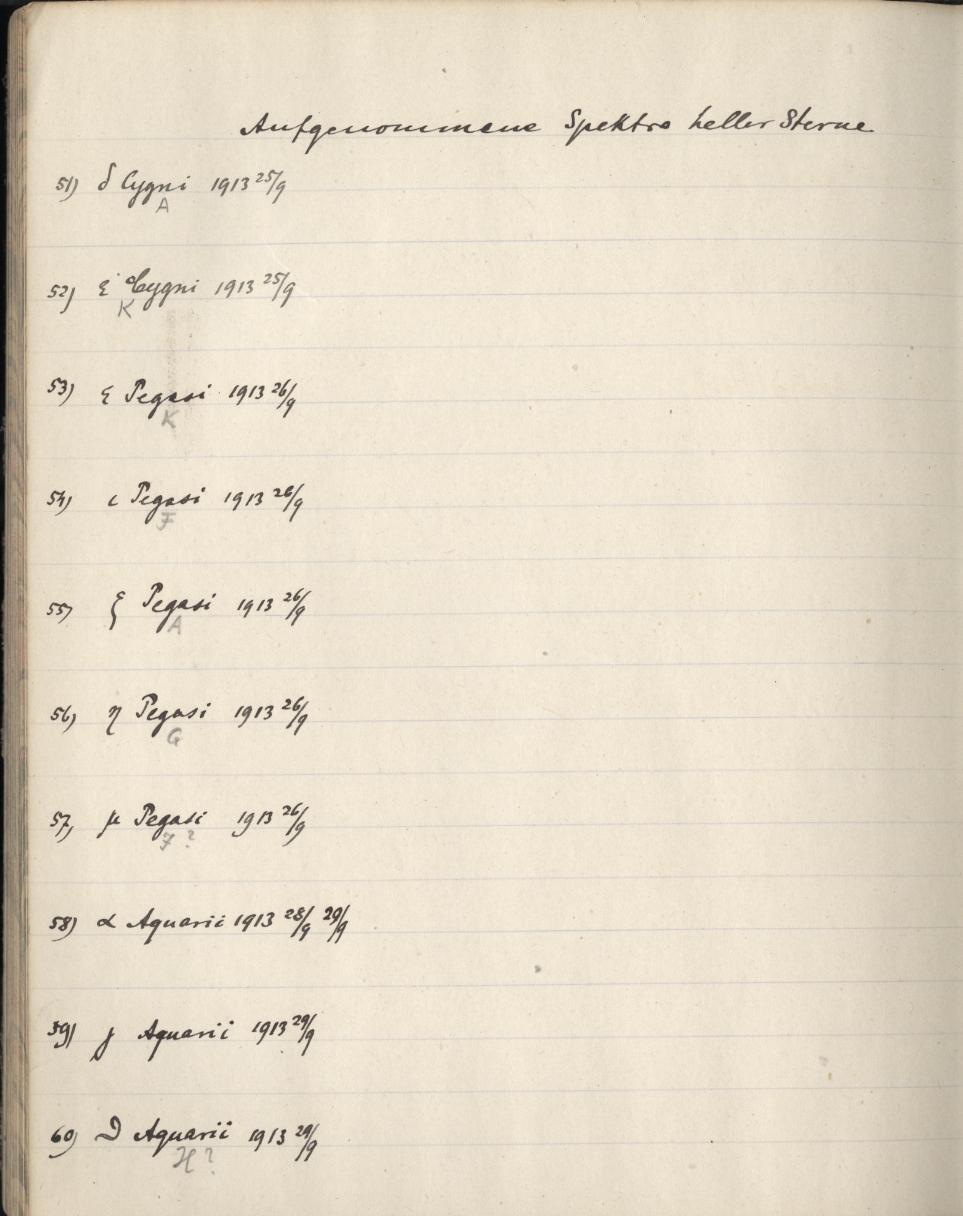 Aufgenommene Spektra heller Sterne
51) δ Cygni 1913 25/9
A
52) ε Cygni 1913 25/9
K
53) ε Pegasi 1913 26/9
K
54) ι Pegasi 1913 26/9
F
55) ξ Pegasi 1913 26/9
A
56) η Pegasi 1913 26/9
G
57) μ Pegasi 1913 26/9
F ?
58) α Aquarii 1913 28/9 29/9
59) γ Aquarii 1913 29/9
60) ϑ Aquarii 1913 29/9
H ?